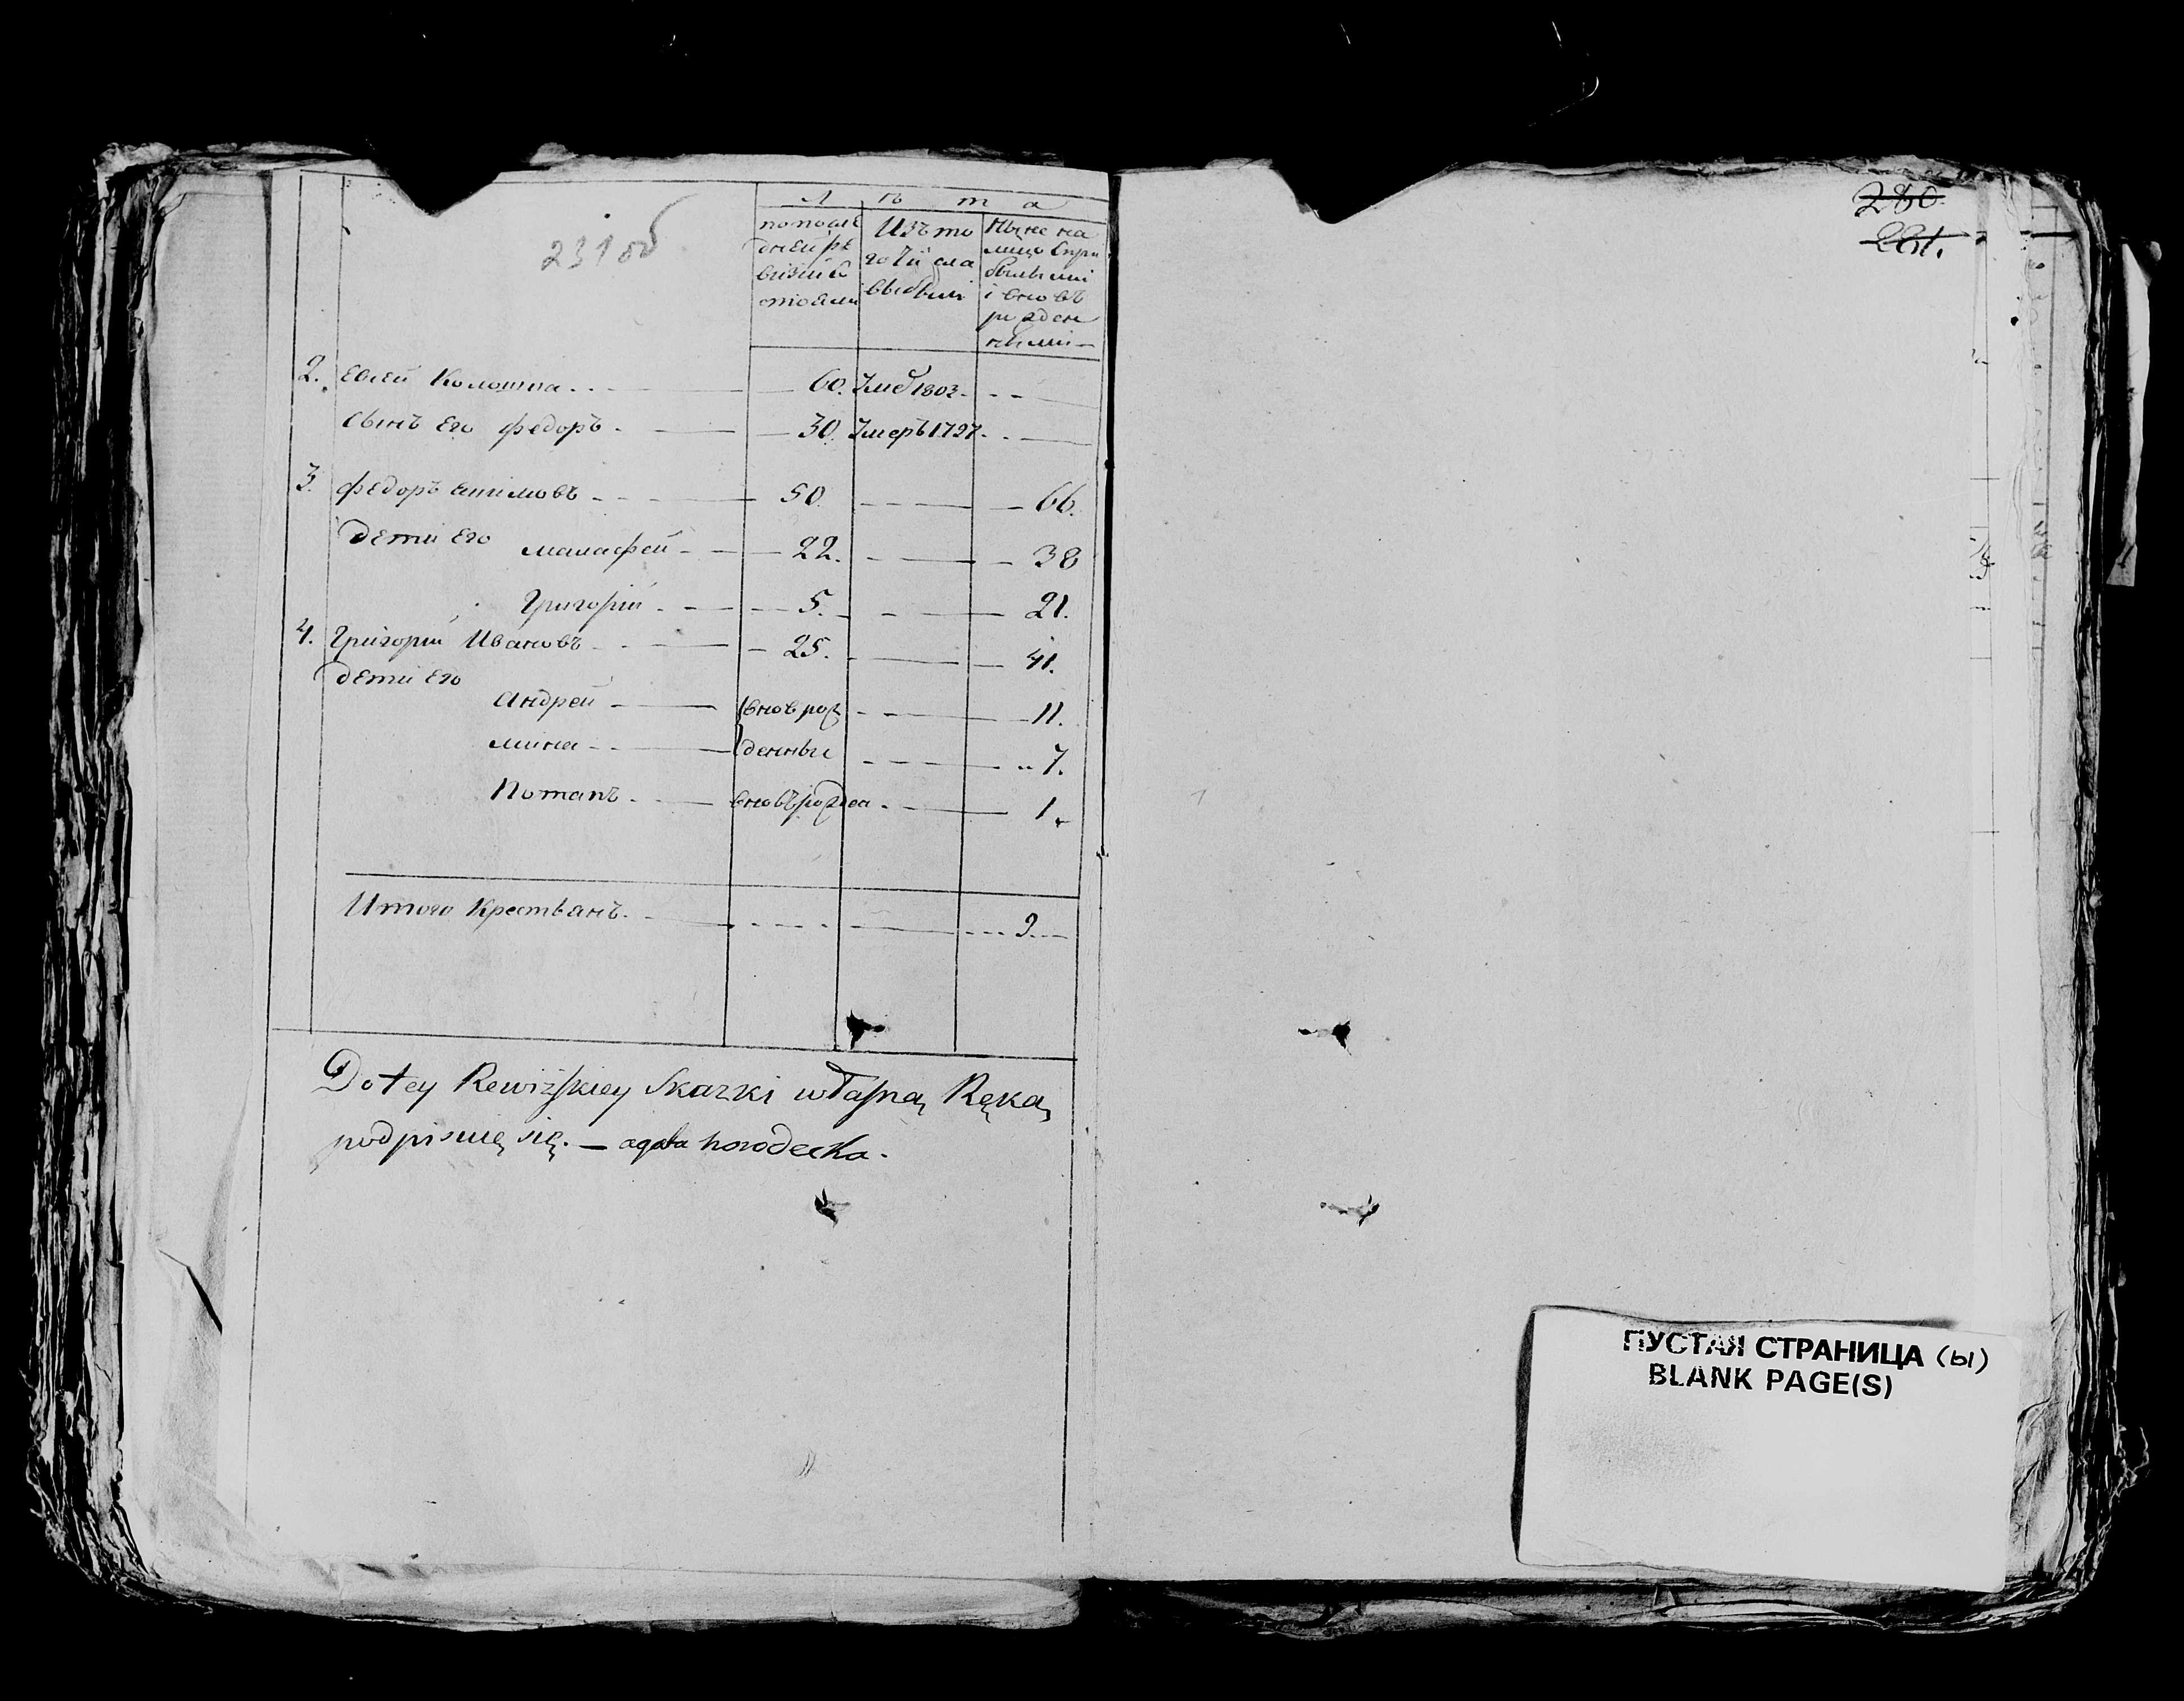 231 об
280.
281.
Л ѣ т а
по после
дней ре
визiй с
стояли
Изъ то
го Чи сла
выбыли
Ныне на
лицо с при
былыми
i вновъ
рожден
ными
2. Евсей Колошпа 60. Умеръ 1803.
сынъ Его федоръ 30. Умеръ 1797.
3. федоръ 50. 66.
дети Его малафей 22. 38
Григорiй 5. 21.
4. Григорiй Ивановъ 25. 41.
дети Его
Андрей вновъ рож 11.
мина денные 7.
Потапъ вновъ рожден 1.
Итого Крестьянъ 9
Do tey Rewizskiey Skazki własną Ręką
podpisuię się. — agata horodecka.
ПУСТАЯ СТРАНИЦА (ы)
BLANK PAGE(S)